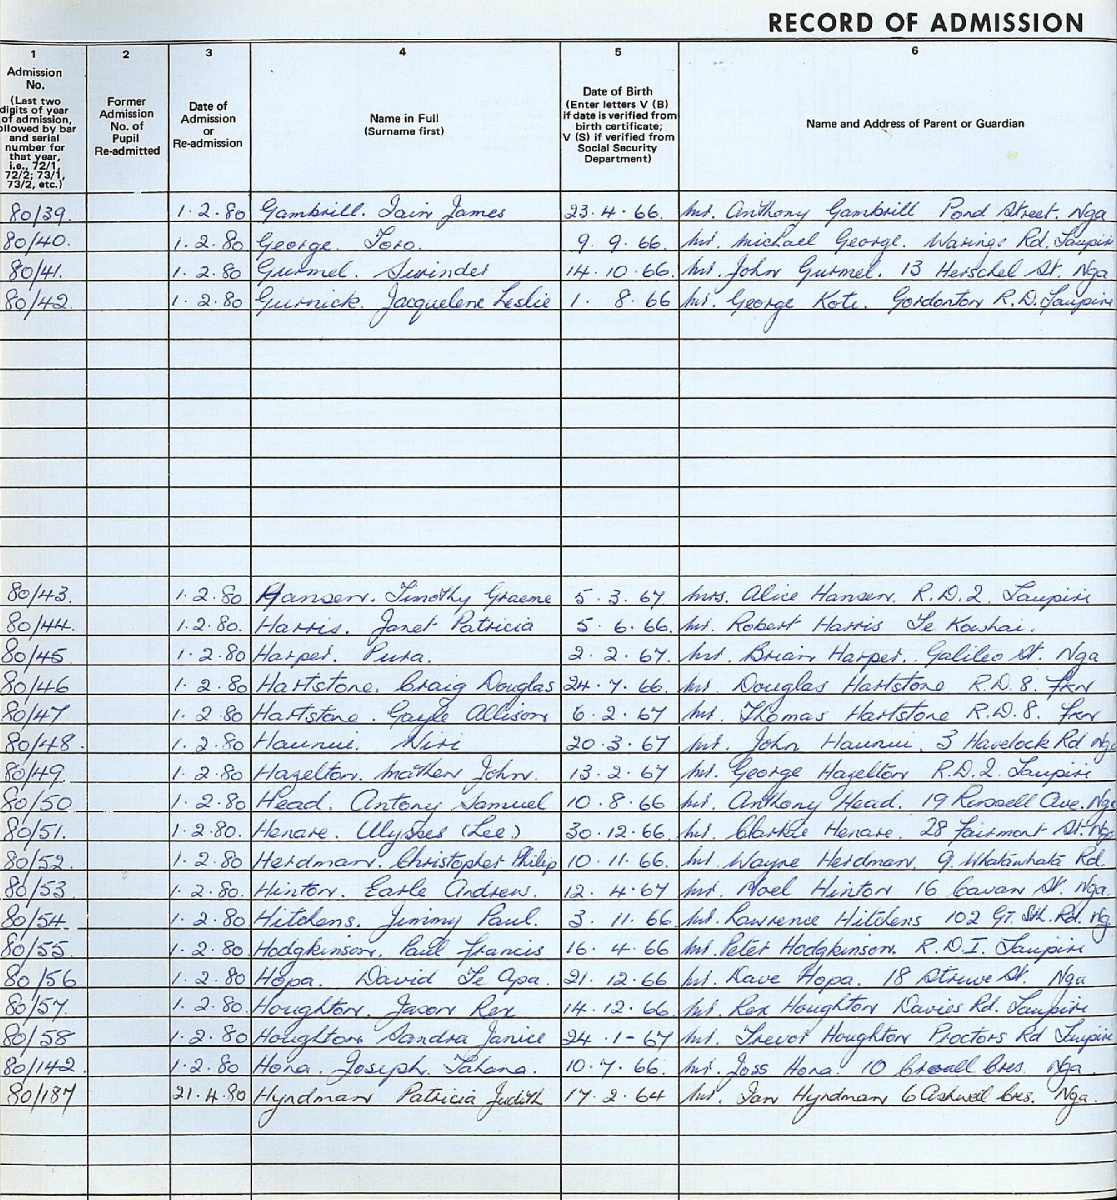 RECORD OF ADMISSION
1 2 3 4 5 6
Admission No. (Last two digits of year of admission, followed by bar and serial number for that year, i.e., 72/1, 72/2; 73/1, 73/2, etc.)
Former Admission No. of Pupil Re-admitted
Date of Admission or Re-admission
Name in Full (Surname first)
Date of Birth (Enter letters V (B) if date is verified from birth certificate; V (S) if verified from Social Security Department)
Name and Address of Parent or Guardian
80/39. 1.2.80 Gambrill. Iain James 23.4.66. Mr. Anthony Gambrill Pond Street. Nga
80/40. 1.2.80 George. Toro. 9.9.66. Mr. Michael George. Warings Rd. Taupiri
80/41. 1.2.80 Gurmel. Surinder 14.10.66. Mr. John Gurmel. 13 Herschel St. Nga
80/42. 1.2.80 Gurnick. Jacquelene Leslie 1.8.66 Mr. George Kote. Gordonton R.D. Taupiri
80/43. 1.2.80 Hansen. Timothy Graeme 5.3.67. Mrs. Alice Hansen. R.D.2. Taupiri
80/44. 1.2.80. Harris. Janet Patricia 5.6.66. Mr. Robert Harris Te Kowhai.
80/45 1.2.80 Harper. Pura. 2.2.67. Mr. Brian Harper. Galileo St. Nga
80/46 1.2.80 Hartstone. Craig Douglas 24.7.66. Mr. Douglas Hartstone R.D.8. Fkn
80/47 1.2.80 Hartstone. Gayle Allison 6.2.67 Mr. Thomas Hartstone R.D.8. Fkn
80/48. 1.2.80 Haunui. Niri 20.3.67 Mr. John Haunui. 3 Havelock Rd Nga
80/49. 1.2.80 Hazelton. Mathew John. 13.2.67 Mr. George Hazelton R.D.2. Taupiri
80/50. 1.2.80 Head. Antony Samuel 10.8.66 Mr. Anthony Head. 19 Russell Ave. Nga
80/51. 1.2.80. Henare. Ulysses (Lee) 30.12.66. Mr. Clarkie Henare. 28 Fairmont St. Nga
80/52. 1.2.80 Herdman. Christopher Philip 10.11.66. Mr. Wayne Herdman. 9. Whatawhata Rd.
80/53 1.2.80. Hinton. Earle Andrew. 12.4.67 Mr. Noel Hinton 16 Cavan St. Nga.
80/54. 1.2.80 Hitchens. Jimmy Paul. 3.11.66 Mr. Lawrence Hitchens 102 GT. Sth. Rd. Ng.
80/55. 1.2.80 Hodgkinson. Paul Francis 16.4.66 Mr. Peter Hodgkinson. R.D.I. Taupiri
80/56 1.2.80 Hopa. David Te Apa. 21.12.66 Mr. Dave Hopa. 18 Struve St. Nga
80/57. 1.2.80 Houghton. Jason Rex 14.12.66 Mr. Rex Houghton Davies Rd. Taupiri
80/58 1.2.80 Houghton Sandra Janice 24.1-67 Mr. Trevor Houghton Proctors Rd Taupiri
80/142. 1.2.80. Hona. Joseph. Tahana. 10.7.66. Mr. Joss Hona. 10 Cres. Nga.
80/187 21.4.80 Hyndman Patricia Judith 17.2.64 Mr. Ian Hyndman 6 Ashwell Cres. Nga.